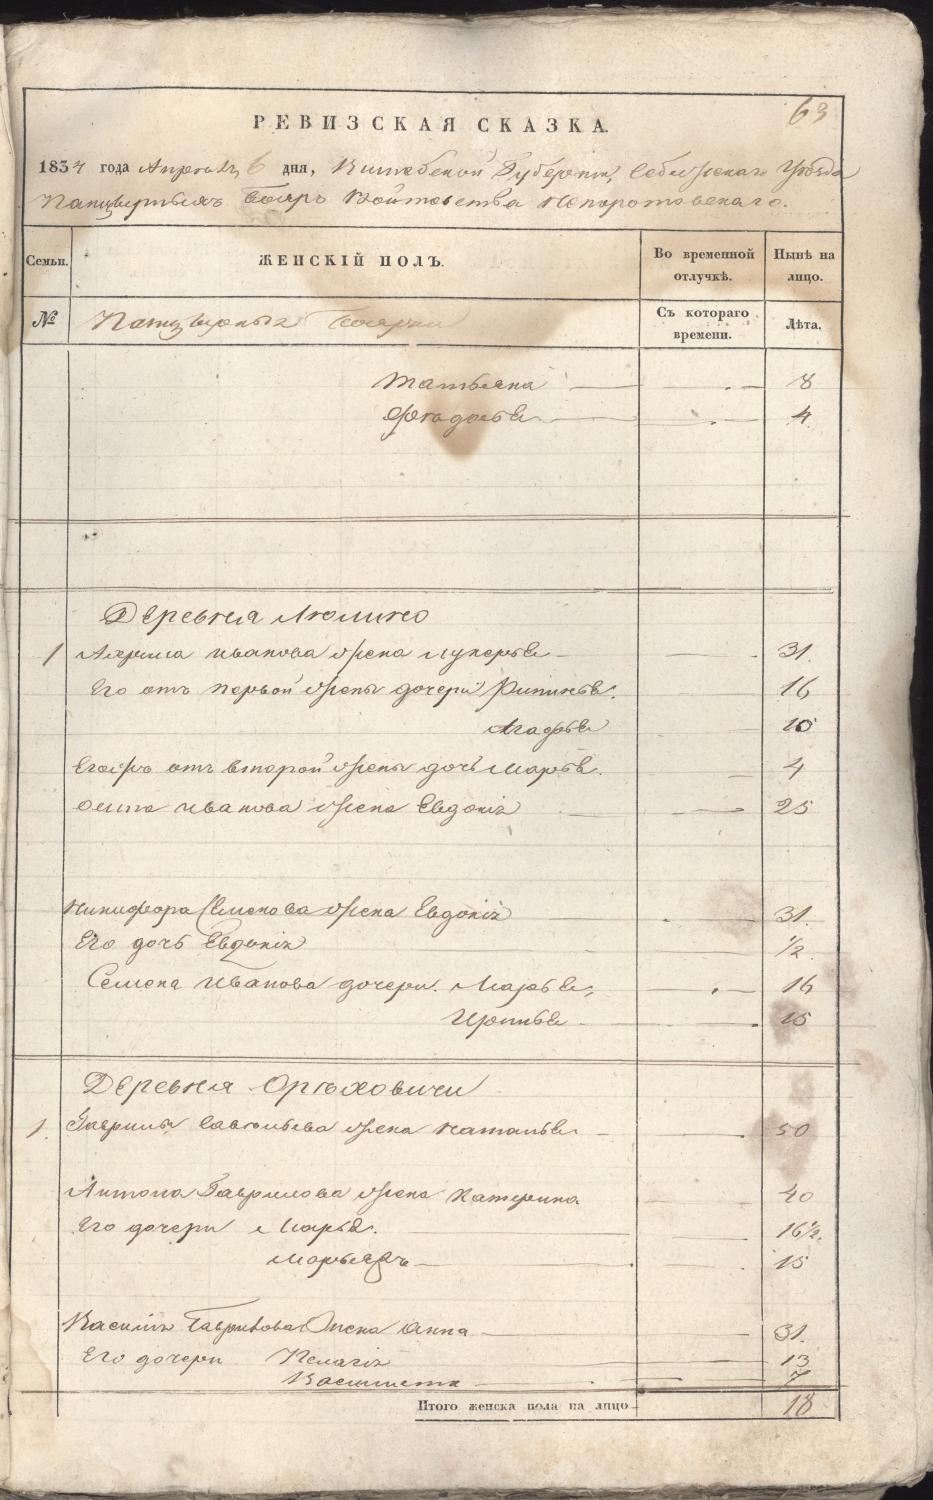 63
РЕВИЗСКАЯ СКАЗКА.
1834 года Апреля 6 дня, Витебской Губерніи, Себежскаго Уезда
Панцырныхъ Бояръ Войтовства Непоротовскаго.
Семьи. ЖЕНСКІЙ ПОЛЪ. Во временной отлучкѣ. Нынѣ на лицо.
№ Панцырныя Боярки Съ котораго времени. Лѣта.
Татьяна 8
Федосья 4
Деревня Люлино
1 Ивановa жена Лукерья 31.
Его отъ первой жены дочери 16
Агафья 10
Егожъ отъ второй жены дочь Марья. 4
Осипа Иванова жена Евдокія 25
Никифора Семенова жена Евдокія 31.
Его дочь Евдокія 1/2.
Семена Иванова дочери. Марья, 16
15
Деревня Ореховичи
1. Гаврилы Савельева жена Наталья 50
Антона Гаврилова жена Катерина 40
Его дочери Марья. 16 1/2.
15
Василія Гаврилова жена Анна 31.
Его дочери Пелагія 13
7
Итого женска пола на лицо 18